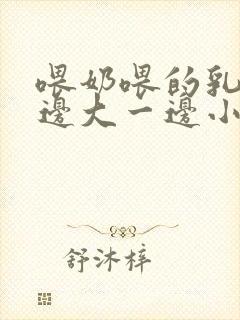 喂奶喂的乳
邊大一邊小
舒沐梓